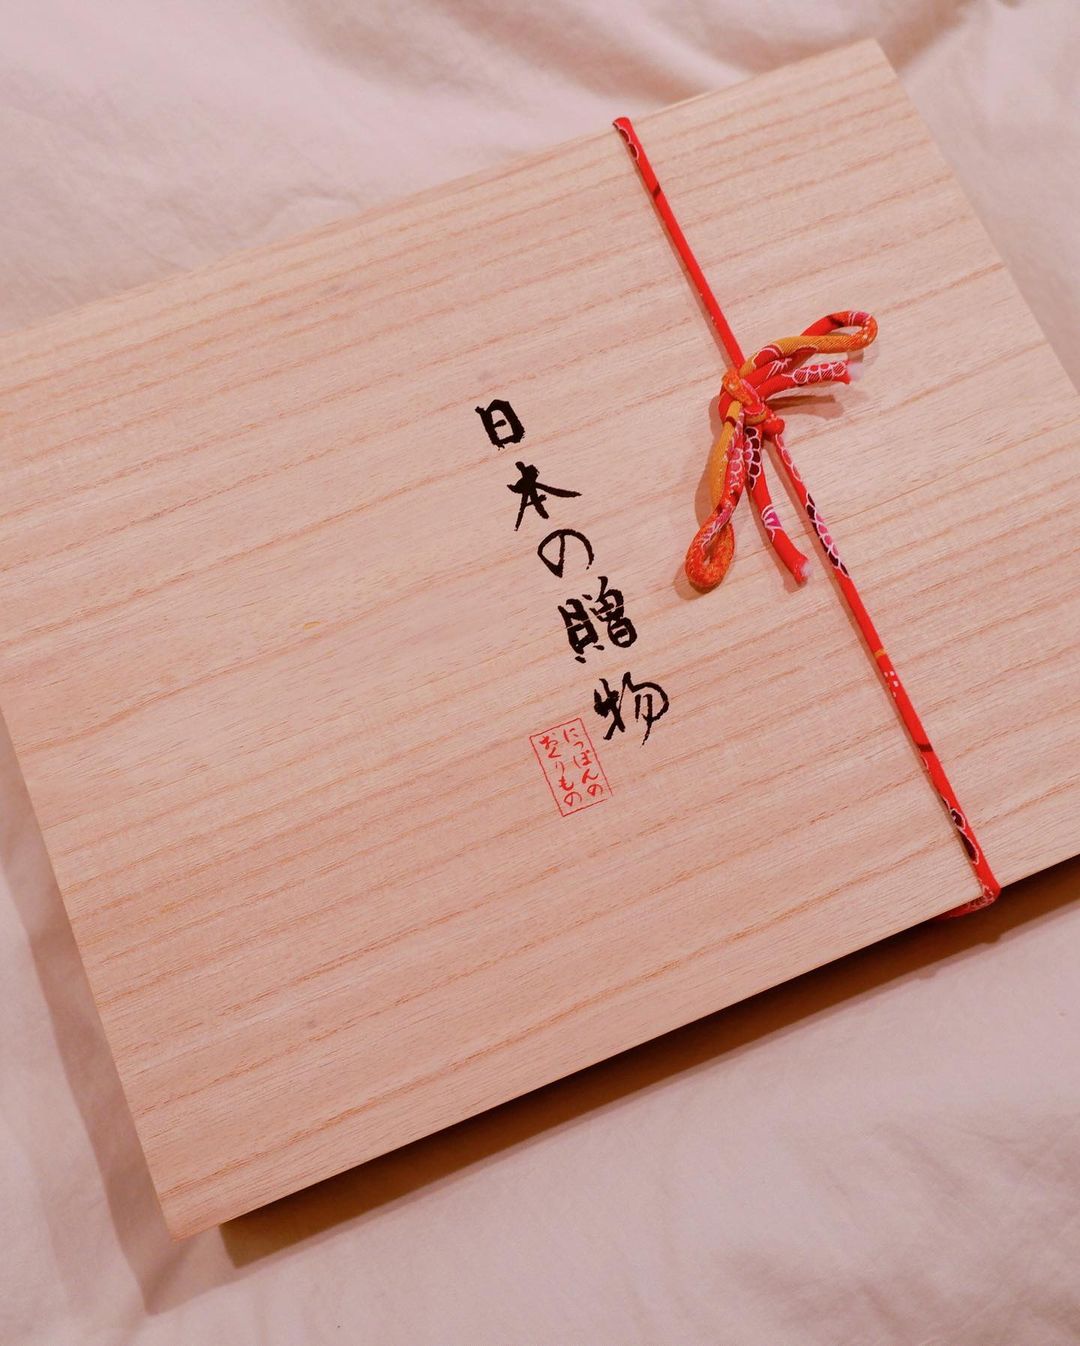 日本の贈物
にっぽんの
おくりもの